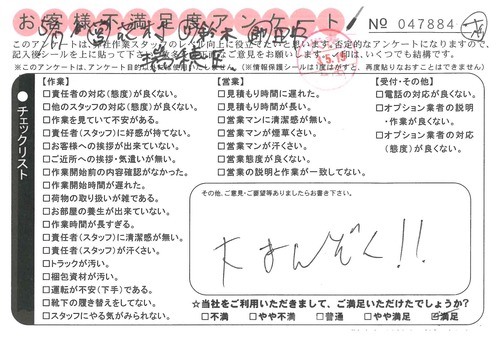 お客様満足度アンケート
No 047884
このアンケートは、弊社作業スタッフのレベル向上に役立てたいと思います。否定的なアンケートになりますので、
記入後シールを上に貼って下さい
も結構です。
(※このアンケートは、アンケート目的以外には使用いたしません。)(※情報保護シールは1度はがすと、再度貼りなおすことはできません)
チェックリスト
【作業】
□責任者の対応(態度)が良くない。
□他のスタッフの対応(態度)が良くない。
□作業を見ていて不安がある。
□責任者(スタッフ)に好感が持てない。
□お客様への挨拶が出来ていない。
□ご近所への挨拶・気遣いが無い。
□作業開始前の内容確認がなかった。
□作業開始時間が遅れた。
□荷物の取り扱いが雑である。
□お部屋の養生が出来ていない。
□作業時間が長すぎる。
□責任者(スタッフ)に清潔感が無い。
□責任者(スタッフ)が汗くさい。
□トラックが汚い。
□梱包資材が汚い。
□運転が不安(下手)である。
□靴下の履き替えをしてない。
□スタッフにやる気がみられない。
【営業】
□見積もり時間に遅れた。
□見積もり時間が長い。
□営業マンに清潔感が無い。
□営業マンが煙草くさい。
□営業マンが汗くさい。
□営業態度が良くない。
□営業の説明と作業が一致してない。
【受付・その他】
□電話の対応が良くない。
□オプション業者の説明
・作業が良くない。
□オプション業者の対応
(態度)が良くない。
その他、ご意見・ご要望等ありましたらお書き下さい。
大まんぞく!!
☆当社をご利用いただきまして、ご満足いただけたでしょうか?
□不満 □やや不満 □普通 □やや満足 ☑満足